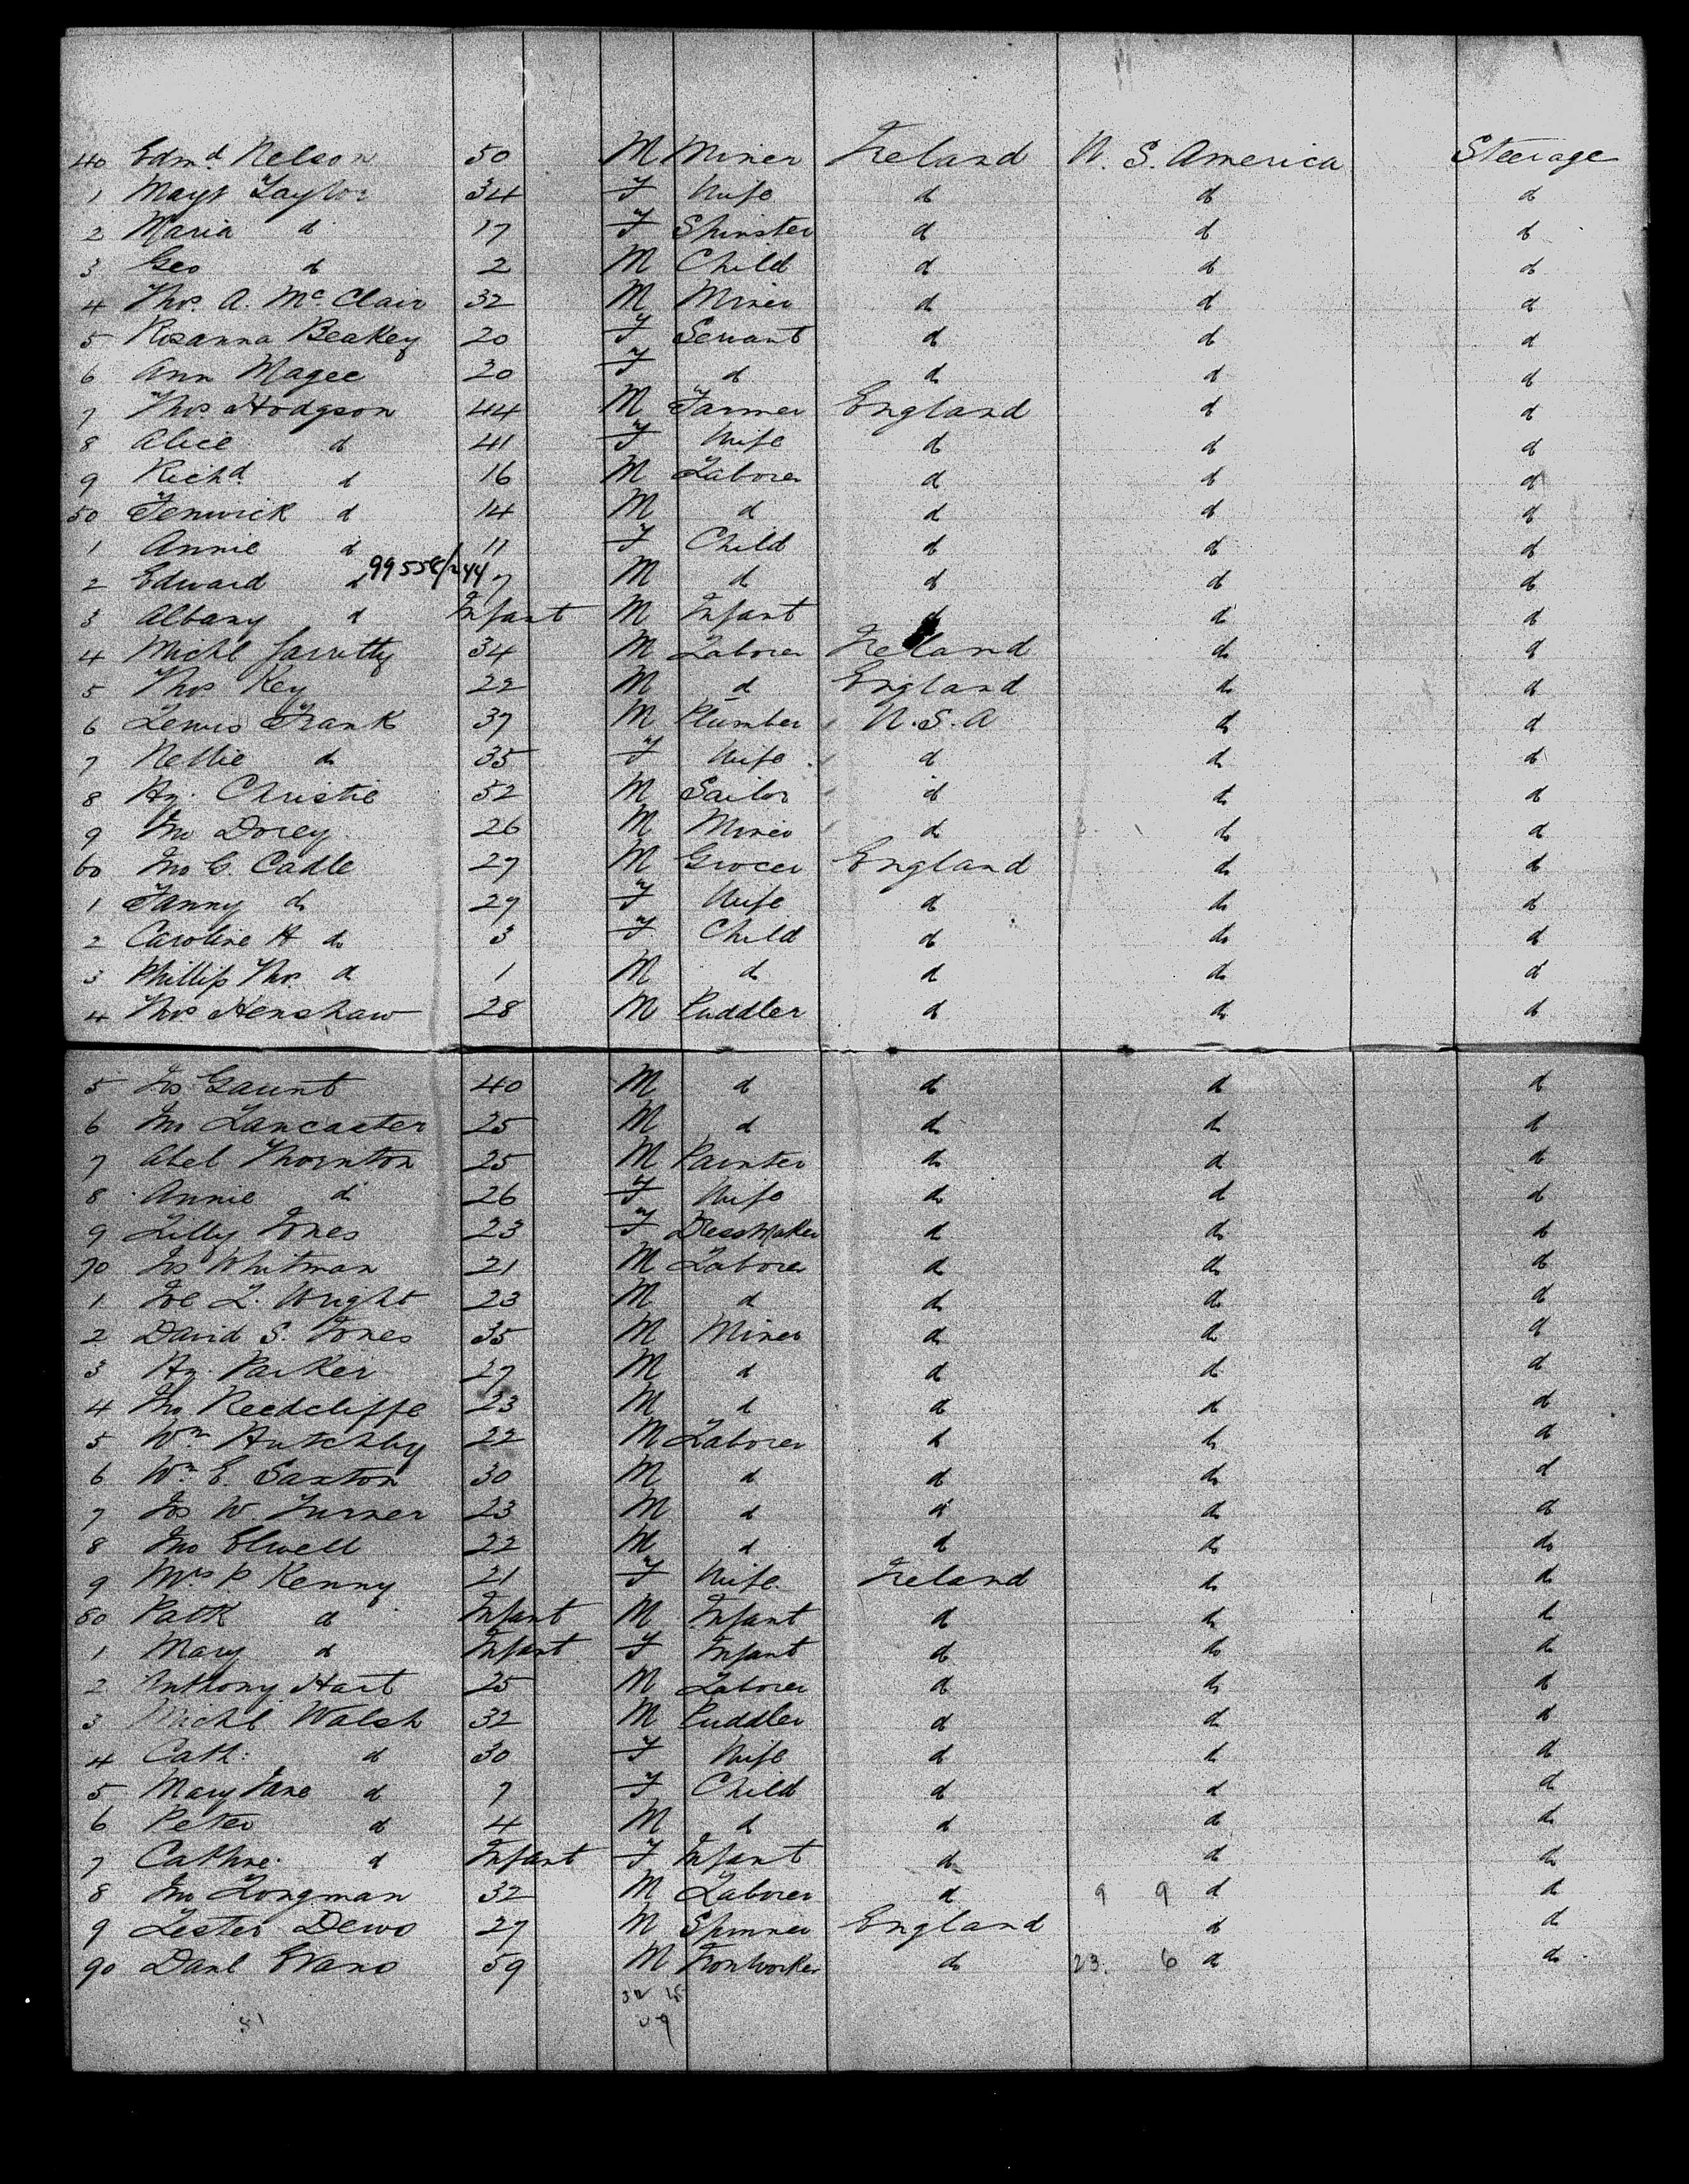 40 Edmd Nelson 50 M Miner Ireland U. S. America Steerage
1 Mayt Taylor 34 F Wife d d d
2 Maria d 17 F Spinster d d d
3 Geo d 2 M Child d d d
4 Thos. A. McClair 32 M Miner d d d
5 Rosanna Beakey 20 F Servant d d d
6 Ann Magee 20 F d d d d
7 Thos Hodgson 44 M Farmer England d d
8 Alice d 41 F Wife d d d
9 Richd d 16 M Laborer d d d
50 Fenwick d 14 M d d d d
1 Annie d 11 F Child d d d
2 Edward d 7 M d d d d
3 Albany d Infant M Infant d d d
4 Michl Garretty 34 M Laborer Ireland d d
5 Thos Key 22 M d England d d
6 Lewis Frank 37 M Plumber U.S.A d d
7 Nellie d 35 F Wife d d d
8 Hy. Christie 52 M Sailor d d d
9 Jno Dorey 26 M Miner d d d
60 Jno G. Cadle 27 M Grocer England d d
1 Fanny d 29 F Wife d d d
2 Caroline A d 3 F Child d d d
3 Phillip Thos d 1 M d d d d
4 Thos Henshaw 28 M Puddler d d d
5 Jos Gaunt 40 M d d d d
6 Jno Lancaster 25 M d d d d
7 Abel Thornton 25 M Painter d d d
8 Annie d 26 F Wife d d d
9 Lilly Jones 23 F DressMaker d d d
70 Jos Whitman 21 M Laborer d d d
1 Joe L. Wright 23 M d d d d
2 David S. Jones 35 M Miner d d d
3 Hy. Parker 27 M d d d d
4 Jno Reedcliffe 23 M d d d d
5 Wm Hutchby 22 M Laborer d d d
6 Wm E. Saxton 30 M d d d d
7 Jos W. Turner 23 M d d d d
8 Jno Elwell 22 M d d d d
9 Mrs P. Kenny 21 F Wife Ireland d d
80 Patk d Infant M Infant d d d
1 Mary d Infant F Infant d d d
2 Anthony Hart 25 M Laborer d d d
3 Michl Walsh 32 M Puddler d d d
4 Cath: d 30 F Wife d d d
5 Mary Jane d 7 F Child d d d
6 Peter d 4 M d d d d
7 Cathne d Infant F Infant d d d
8 Jno Longman 32 M Laborer d 9 9 d d
9 Lester Dews 27 M Spinner England d d
90 Danl Evans 59 M Ironworker d 23. 6 d d